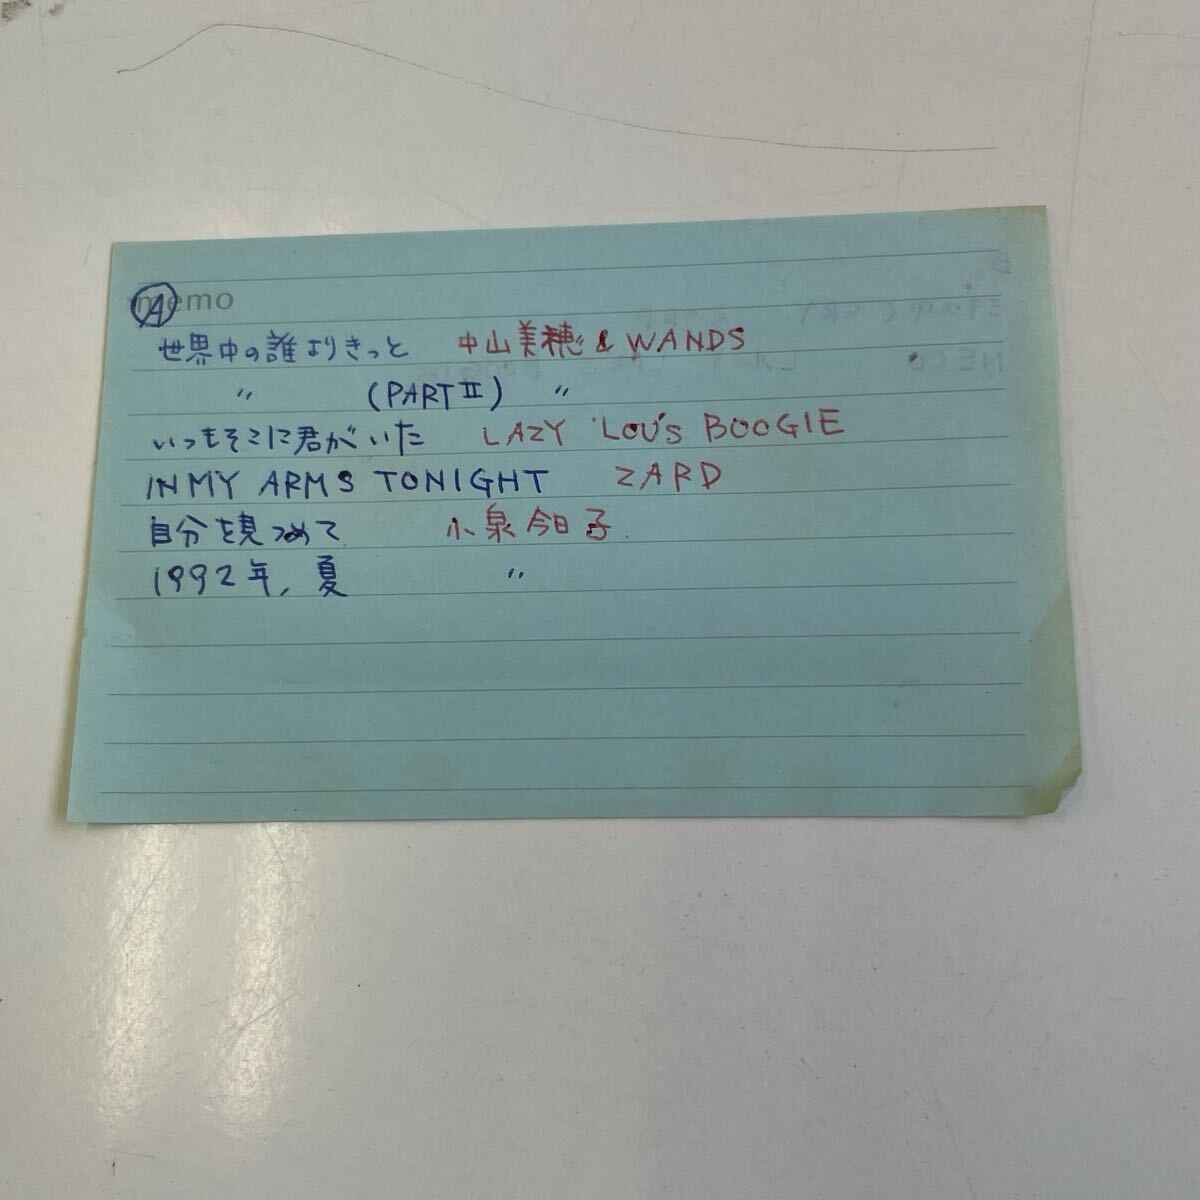 Ⓐ memo
世界中の誰よりきっと 中山美穂 & WANDS
〃 (PARTⅡ) 〃
いつもそこに君がいた LAZY LOU's BOOGIE
IN MY ARMS TONIGHT ZARD
自分を見つめて 小泉今日子
1992年,夏 〃